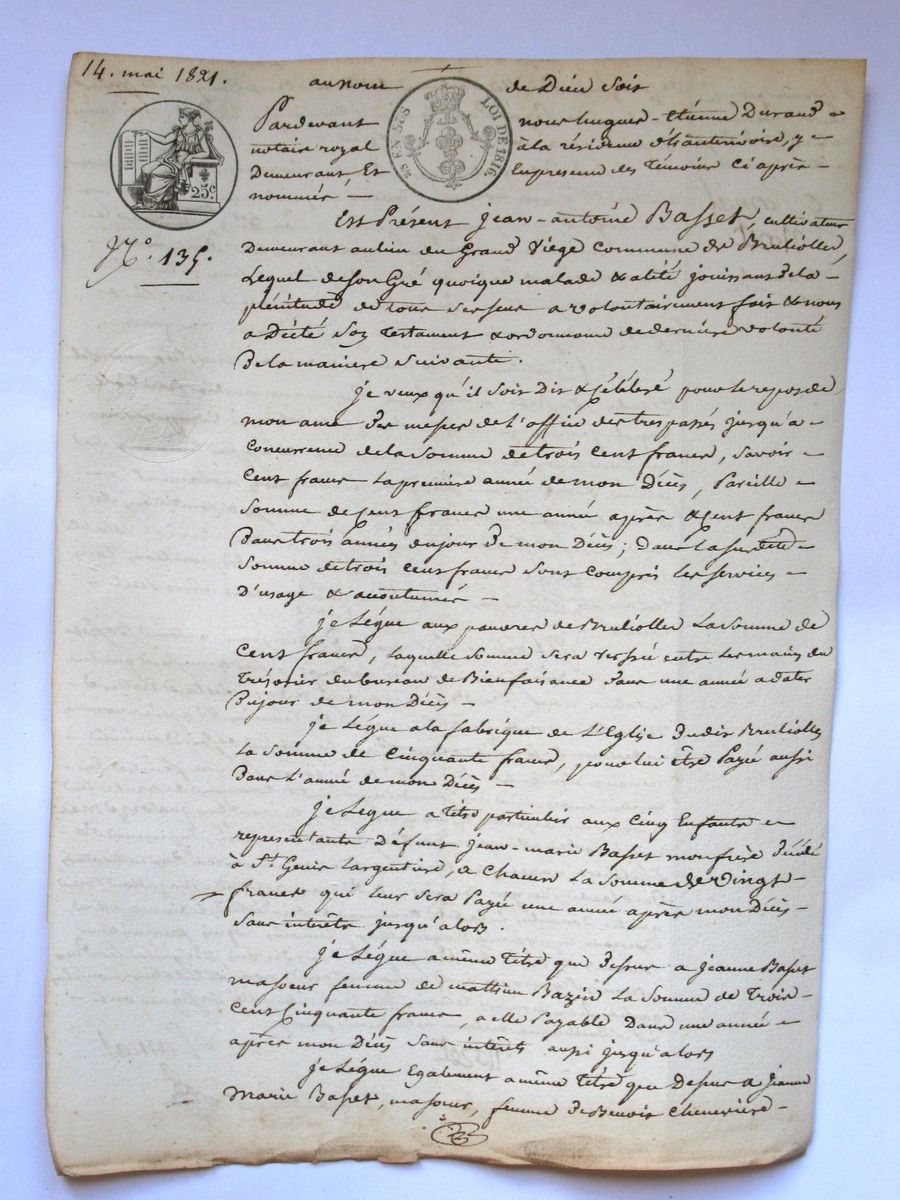 14. mai 1821.
au nom de Dieu soit
Pardevant nous hugues-etienne Durand
notaire royal à la résidence d'hauterivoire, y
Demeurant Et En presence des Témoins Ci après
nommés
25 EN SUS LOI DE 1816.
25c.
N.o 135.
Est Présent Jean-antoine Basset, cultivateur
Demeurant au lieu du Grand Viege Commune de Brulliolles,
Lequel de son Gré quoique malade & alité jouissant de la
plénitude de tous ses sens a volontairement fait & nous
a Dicté Son Testament & ordonnance de derniere volonté
De la maniere Suivante.
je veux qu'il Soit Dit & Célébré pour le repos de
mon ame des messes de l'office des trespassés jusqu'a
Concurrence de la Somme de trois Cent francs, Savoir
Cent francs la premiere année de mon Décès, Pareille
Somme de Cent francs une année après & Cent francs
Dans trois années du jour De mon Décès; Dans la susdite
Somme de trois Cent francs sont Compris les services
D'usage & acoutumés
je Légue aux pauvres de Brulliolles La Somme de
Cent francs, laquelle Somme sera versée entre les mains du
Trésorier du bureau de Bienfaisance Dans une année a dater
Du jour de mon Décès
je Légue a la fabrique de L'Eglise Dudit Brulliolles
La Somme de Cinquante francs, pour lui Etre Payée aussi
Dans L'année de mon Décès
je Legue a titre particulier aux Cinq Enfants
representants Défunt Jean-marie Basset mon frère Décédé
à St. Genis Largentiere, a Chacun La Somme de Vingt
francs qui leur sera Payée une année après mon Décès
Sans intérêts jusqu'alors.
je Légue a même Titre que Dessus a Jeanne Basset
ma soeur femme de mathieu Bazin La Somme de Trois
Cent Cinquante francs, a elle Payable Dans une année
après mon Décès Sans intérêts aussi jusqu'alors
je Légue Egalement a même titre que Dessus a Jeanne
Marie Basset, ma soeur, femme De Benoit Chenevière